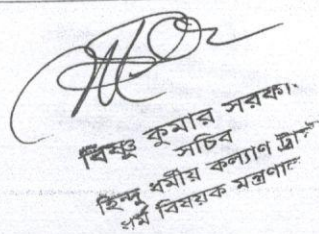 বিষ্ণু কুমার সরকা
সচিব
হিন্দু ধর্মীয় কল্যাণ ট্রাস্ট
ধর্ম বিষয়ক মন্ত্রণাল